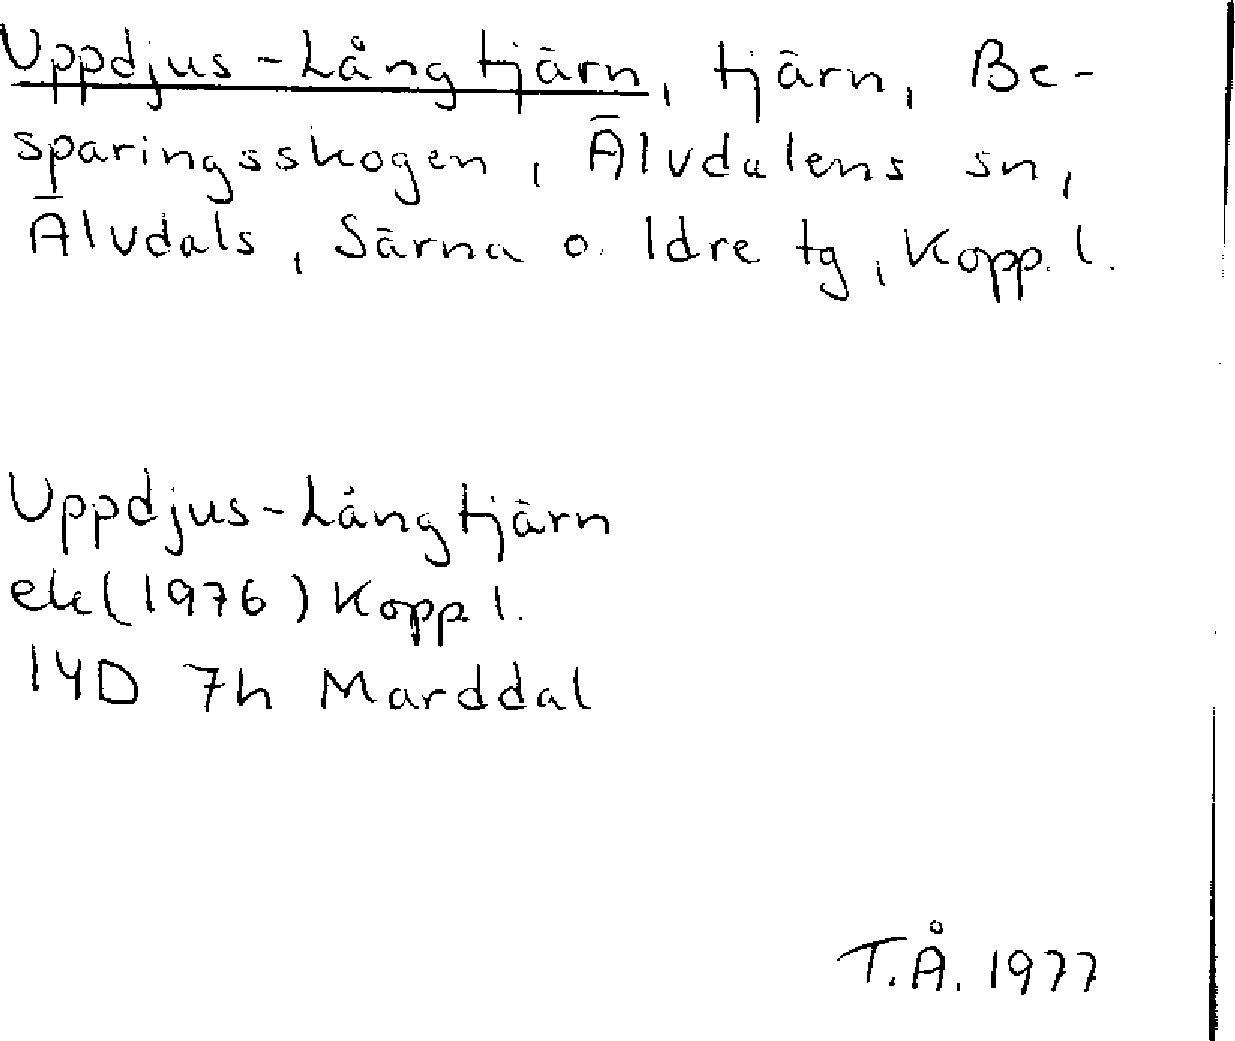 Uppdjus-Långtjärn, tjärn, Be-
sparingsskogen, Älvdalens sn,
Älvdals, Särna o. Idre tg, Kopp. l.
Uppdjus-Långtjärn
ek(1976) Kopp. l.
14D 7h Marddal
T.Å. 1977